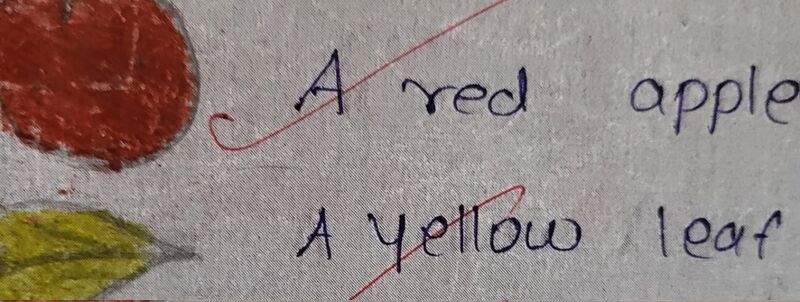 A red apple
A yellow leaf